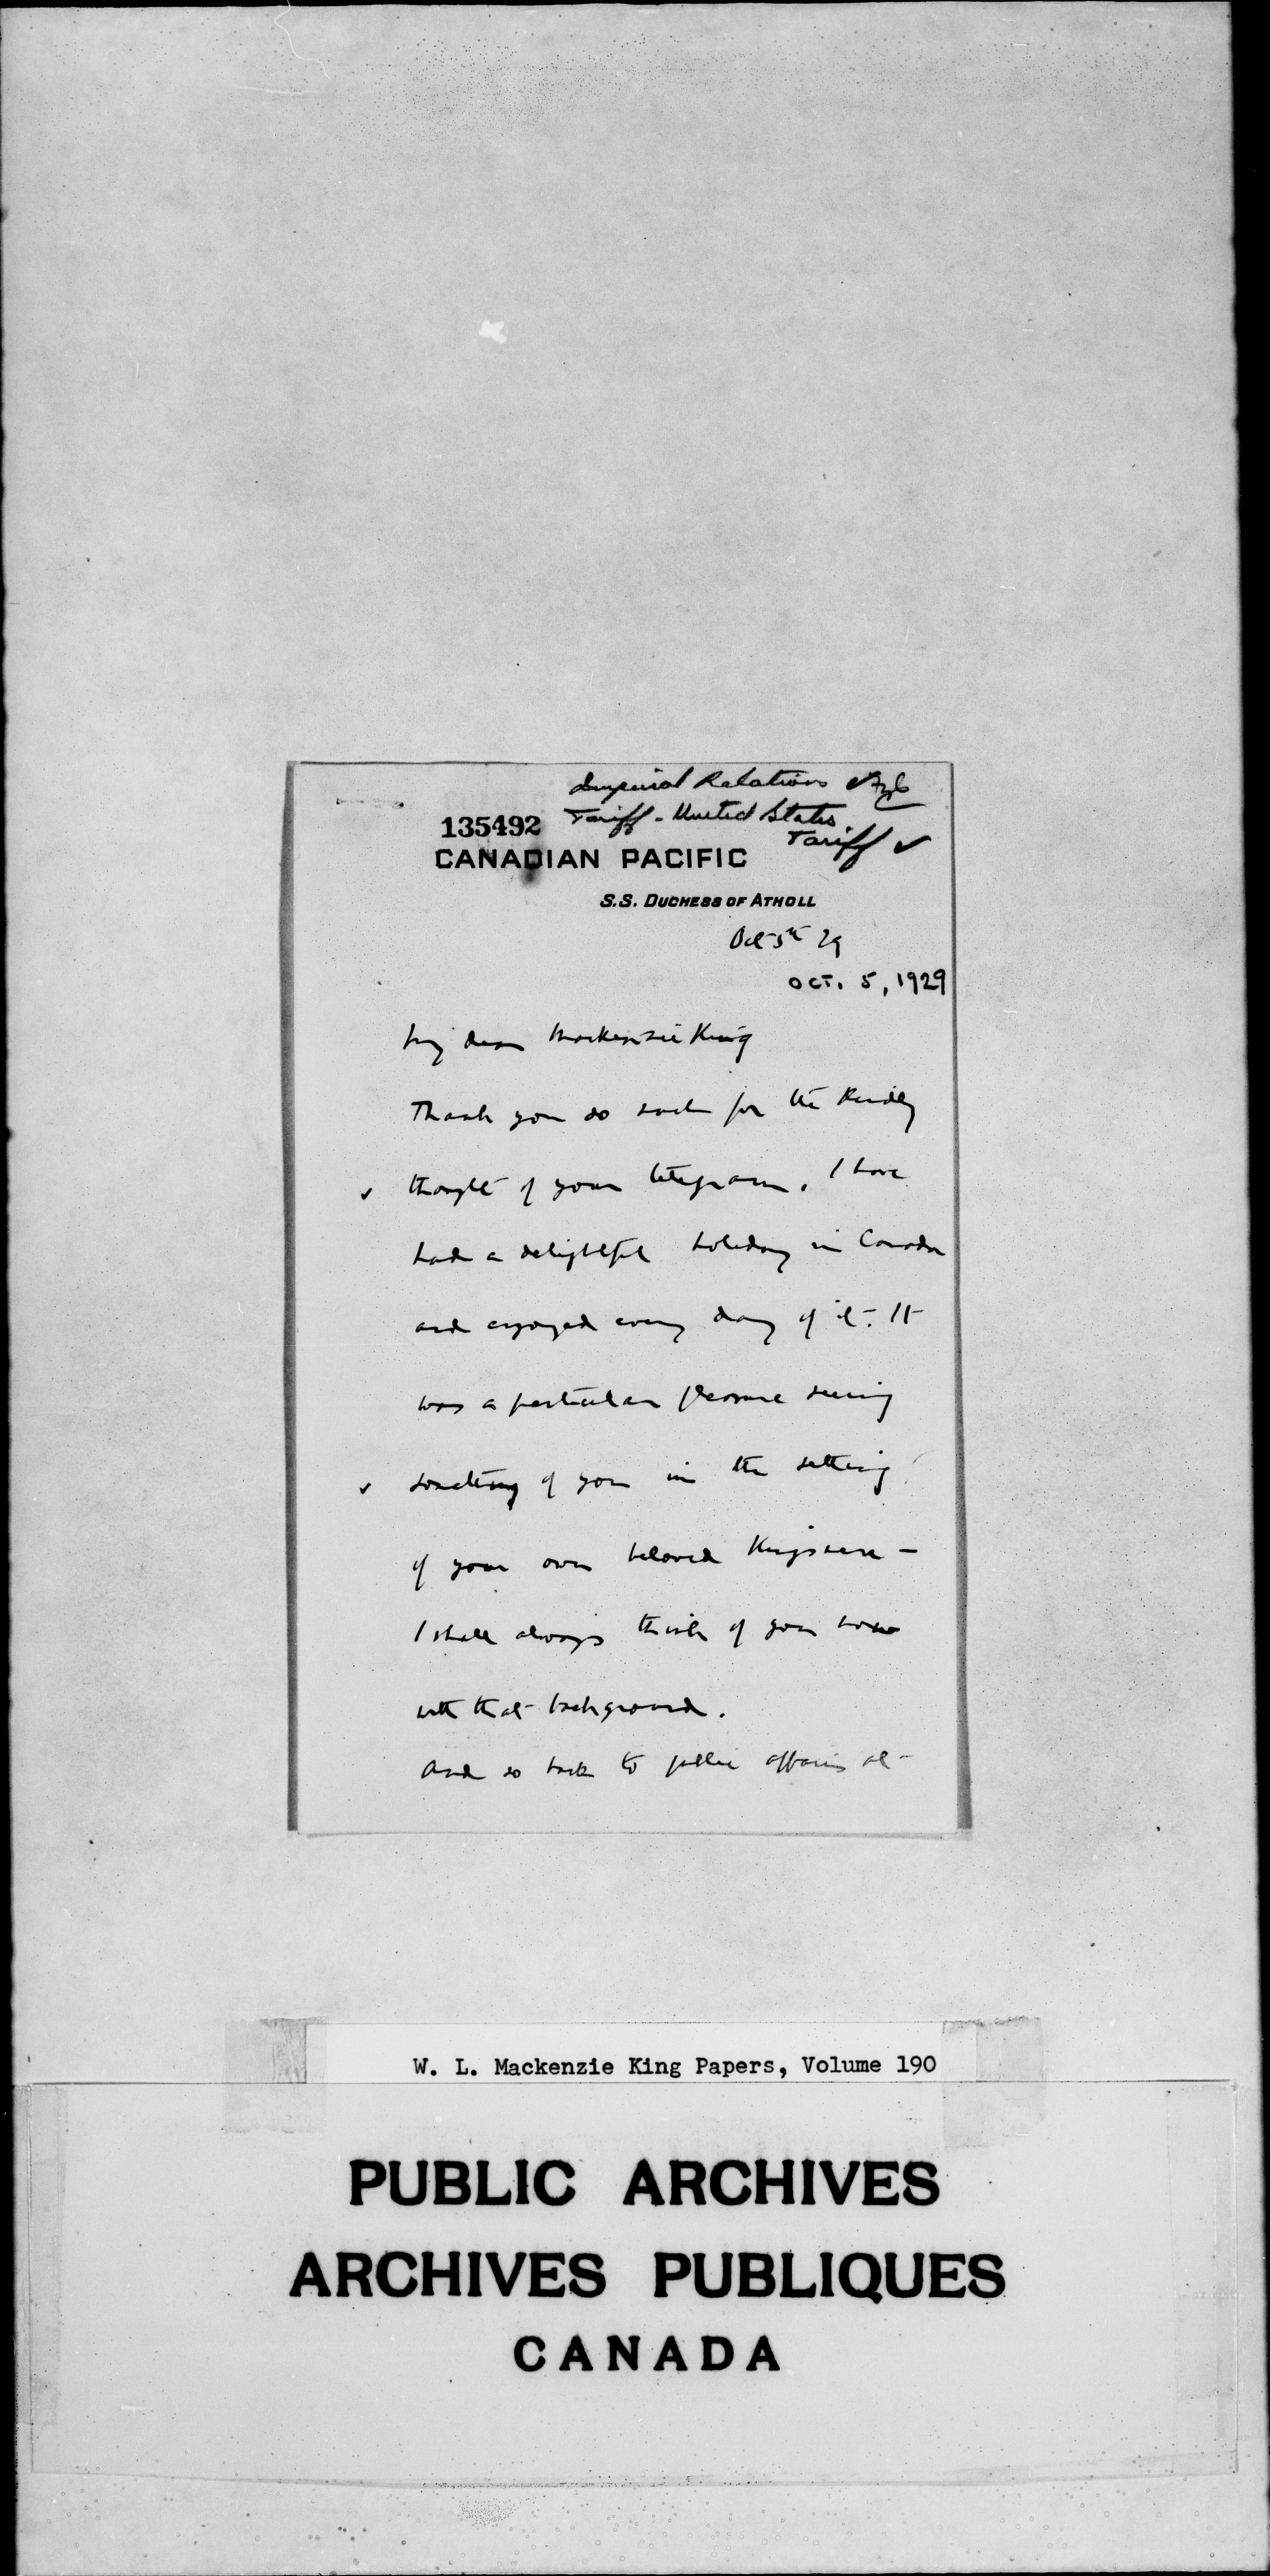 Imperial Relations
135492 Tariff - United States
Tariff ✓
CANADIAN PACIFIC
S.S. DUCHESS OF ATHOLL
Oct 5th 29
OCT. 5, 1929
My dear Mackenzie King
Thank you so much for the kindly
✓ thought of your telegram. I have
had a delightful holiday in Canada
and enjoyed every day of it. It
was a particular pleasure seeing
✓ something of you in the setting
of your own beloved Kingsmere -
I shall always think of you now
with that background.
And so back to public affairs at
W. L. Mackenzie King Papers, Volume 190
PUBLIC ARCHIVES
ARCHIVES PUBLIQUES
CANADA